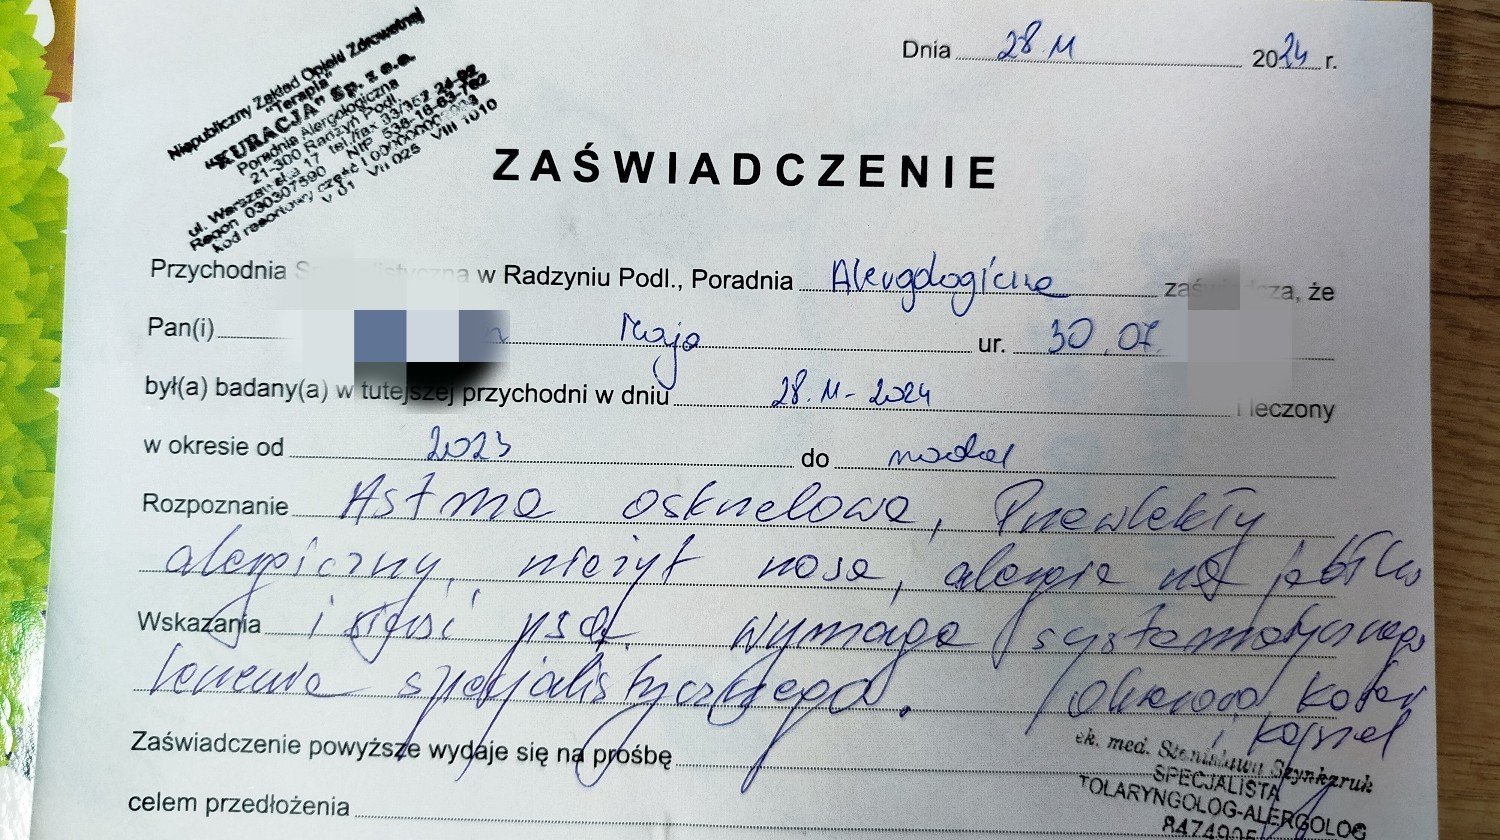 Niepubliczny Zakład Opieki Zdrowotnej
"Terapia"
"KURACJA" Sp. z o.o.
Poradnia Alergologiczna
21-300 Radzyń Podl.
ul. Warszawska 17 tel./fax 83/352 24-02
Regon 030307590 NIP 538-16-63-762
kod resortowy część I
V 01 VII 025 VIII 1010
Dnia 28.11 2024 r.
ZAŚWIADCZENIE
Przychodnia w Radzyniu Podl., Poradnia Alergologiczna zaświadcza, że
Pan(i) Maja ur. 30.07.
był(a) badany(a) w tutejszej przychodni w dniu 28.11-2024 i leczony
w okresie od 2023 do nadal
Rozpoznanie Astma oskrzelowa, Przewlekły
alergiczny nieżyt nosa, alergia na jabłko
Wskazania i sierść psa. Wymaga systematycznego
leczenia specjalistycznego.
i
Zaświadczenie powyższe wydaje się na prośbę
lek. med. Stanisława Szynkaruk
SPECJALISTA
celem przedłożenia
OTOLARYNGOLOG-ALERGOLOG